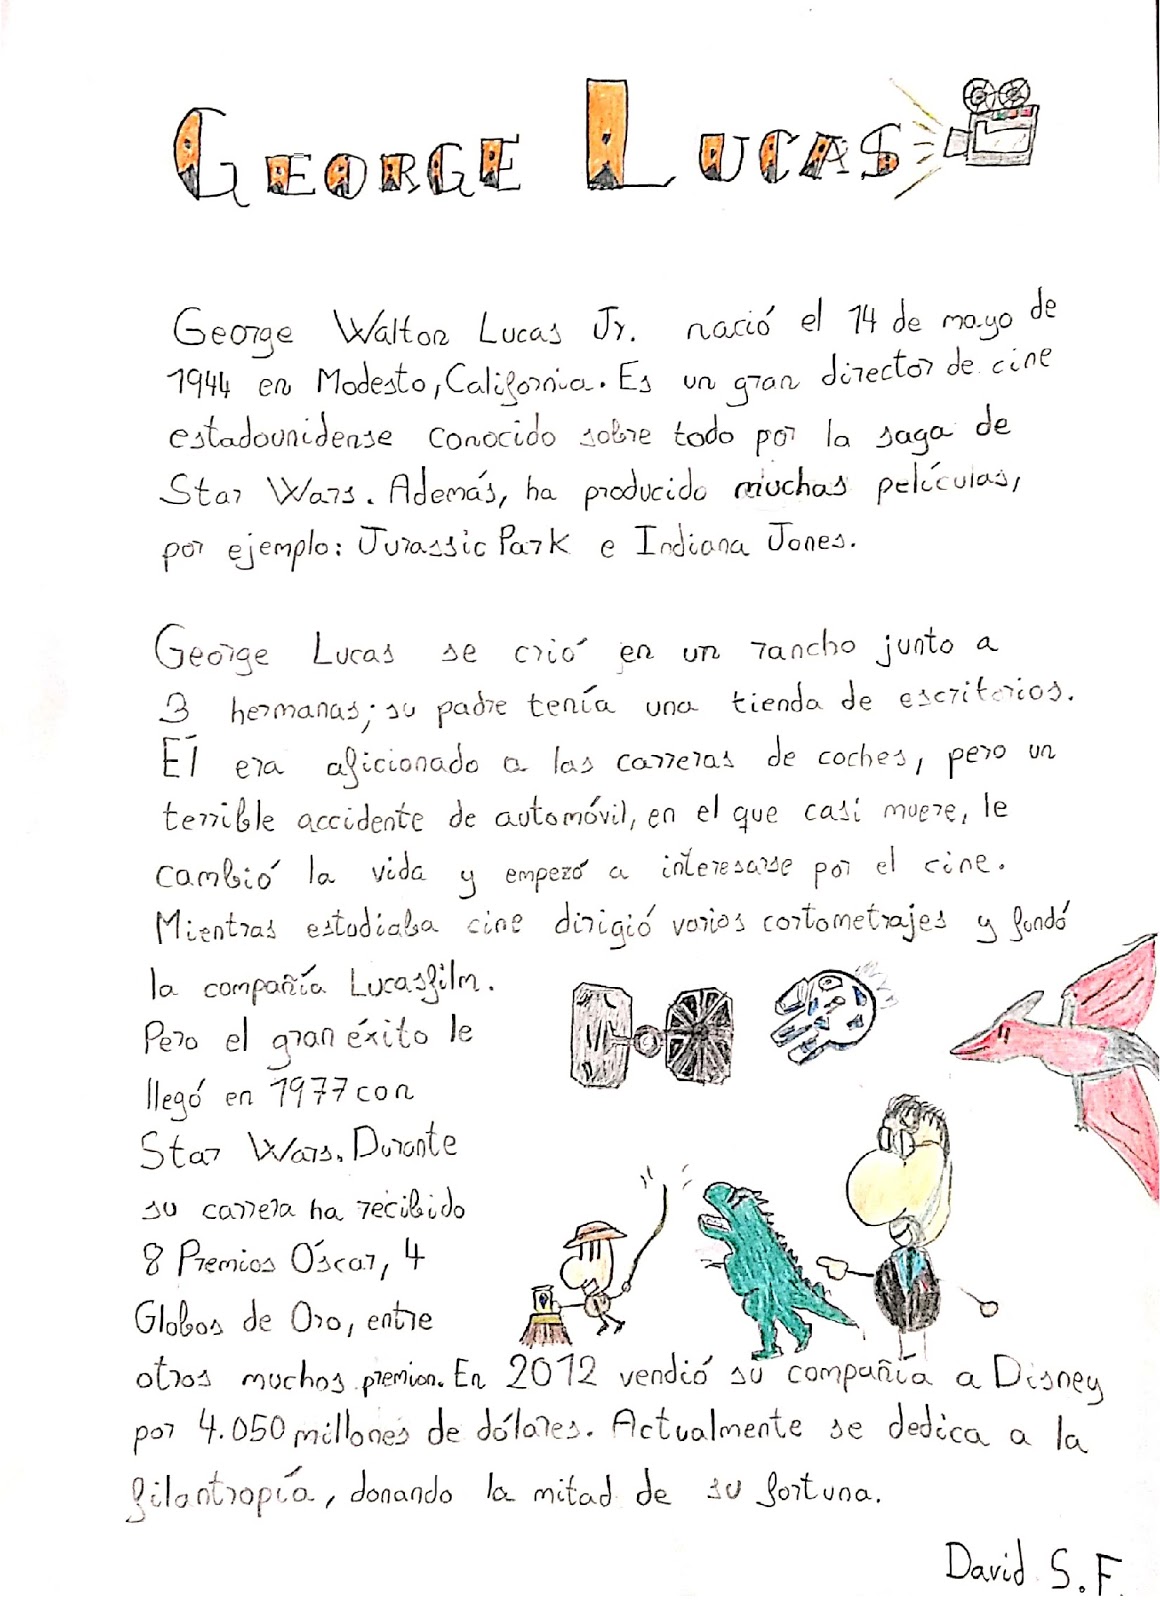 GEORGE LUCAS
George Walton Lucas Jr. nació el 14 de mayo de
1944 en Modesto, California. Es un gran director de cine
estadounidense conocido sobre todo por la saga de
Star Wars. Además, ha producido muchas películas,
por ejemplo: Jurassic Park e Indiana Jones.
George Lucas se crió en un rancho junto a
3 hermanas; su padre tenía una tienda de escritorios.
Él era aficionado a las carreras de coches, pero un
terrible accidente de automóvil, en el que casi muere, le
cambió la vida y empezó a interesarse por el cine.
Mientras estudiaba cine dirigió varios cortometrajes y fundó
la compañía Lucasfilm.
Pero el gran éxito le
llegó en 1977 con
Star Wars. Durante
su carrera ha recibido
8 Premios Óscar, 4
Globos de Oro, entre
otros muchos premion. En 2012 vendió su compañía a Disney
por 4.050 millones de dólares. Actualmente se dedica a la
filantropía, donando la mitad de su fortuna.
David S.F.